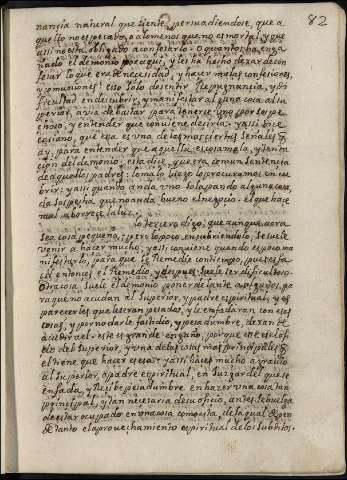 82
nancia natural que siente, persuadiendose, que a
quello no es pecado, o a lo menos que no es mortal, y que
assi no esta obligado a confesarlo. O quantos ha enga
ñado el demonio por aqui, y les ha hecho dexar de con
fesar lo que era de necesidad, y hacer malas confesiones,
y comuniones: esto solo de sentir repugnancia, y di
ficultad en descubrir, y manifestar alguna cosa al su
perior, avia de bastar para tenerse uno por sospe
choso, y entender que conviene decirla: y assi dice
Casiano, que esa es una de las mas ciertas señales q
ay, para entender que aquella es cosa mala, y tenta
cion del demonio: esta dice, que era comun sentencia
de aquellos padres: lo malo luego lo procuramos encu
brir: y assi quando anda uno solapando alguna cosa,
da sospecha que no anda bueno el negocio: el que hace
mal aborrece la luz.
lo tercero digo, que aunque aora
sea cosa pequeña, pero poco encubriendolo, se suele
venir a hacer mucho: y assi conviene quando es poco ma
nifestarlo, para que se remedie con tiempo, pues es fa
cil entonces el remedio, y despues suele ser dificultoso.
Otra cosa suele el demonio poner delante a algunos, pa
ra que no acudan al Superior, y padre espiritual, y es
parecerles que le seran pesados, y le enfadaran con esas
cosas, y por no darle fastidio, y pesadumbre, dexan de
acudir a el. este es grande engaño, porque ese es el ofi
cio del Superior, y una de las cosas mas principales q
el tiene que hacer es esa: y assi hace mucho agravio
al Superior, o padre espiritual, en Juzgar del que se
enfada, y recibe pesadumbre en hacer una cosa tan
principal, y tan necesaria de su oficio, antes se huelga
de estar ocupado en una cosa como esta, de la qual depen
de tanto el aprovechamiento espiritual de los subditos.